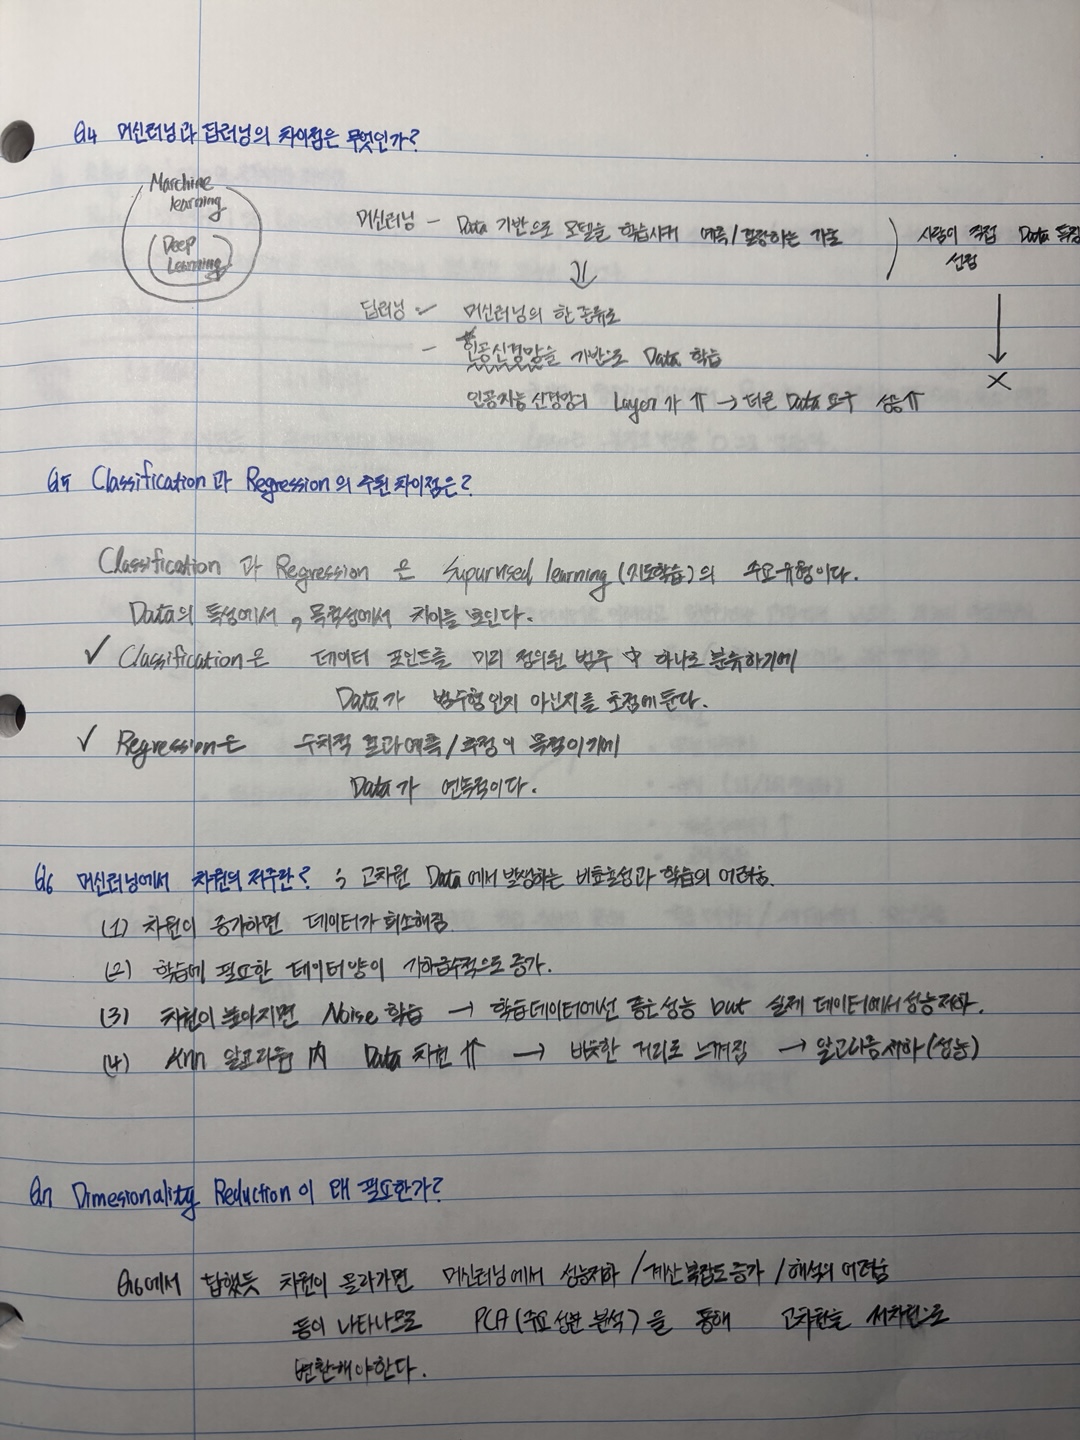 Q4 머신러닝과 딥러닝의 차이점은 무엇인가?
Marchine
learning
Deep
Learning
머신러닝 - Data 기반으로 모델을 학습시켜 예측/결정하는 기술
사람이 직접 Data 특징
선정
딥러닝 - 머신러닝의 한 종류로
- 인공신경망을 기반으로 Data 학습
X
인공지능 신경망의 Layer가 ⇑ → 더 Data 요구 성능⇑
Q5 Classification과 Regression의 주된 차이점은?
Classification 과 Regression 은 Supurvised learning (지도학습)의 주요유형이다.
Data의 특성에서, 목적성에서 차이를 보인다.
✓ Classification은 데이터 포인트를 미리 정의된 범주 中 하나로 분류하기에
Data가 범주형인지 아닌지를 초점에 둔다.
✓ Regression은 수치적 결과예측/추정이 목적이기에
Data가 연속적이다.
Q6 머신러닝에서 차원의 저주란? ; 고차원 Data에서 발생하는 비효율성과 학습의 어려움.
(1) 차원이 증가하면 데이터가 희소해짐
(2) 학습에 필요한 데이터양이 기하급수적으로 증가.
(3) 차원이 높아지면 Noise 학습 → 학습데이터에선 좋은성능 but 실제 데이터에서 성능저하.
(4) Knn 알고리즘 內 Data 차원 ⇑ → 비슷한 거리로 느껴짐 → 알고리즘저하(성능)
Q7 Dimesionality Reduction이 왜 필요한가?
Q6에서 답했듯 차원이 올라가면 머신러닝에서 성능저하/계산복잡도증가/해석의 어려움
등이 나타나므로 PCA(주요 성분 분석)을 통해 고차원을 저차원으로
변환해야한다.